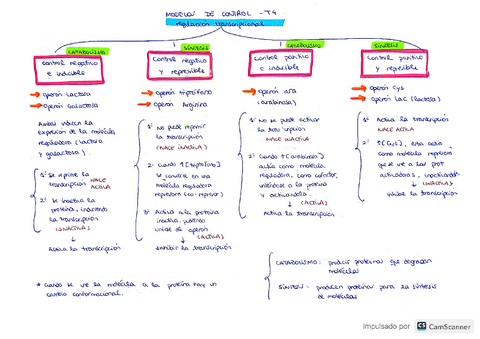 MODELOS DE CONTROL - T4
regulación transcripcional
CATABOLISMO
Control negativo
e inducible
→ Operón Lactosa
→ Operón Galactosa
Ambas inducen la
expresión de la molécula
reguladora (lactosa
y galactosa).
1º Se reprime la
transcripción NACE
ACTIVA
2º Se inactiva la
proteína, induciendo
la transcripción
(INACTIVA)
Activa la transcripción
* Cuando se une la molécula a la proteína hay un
cambio conformacional.
SÍNTESIS
Control negativo
y represible
→ Operón triptófano
→ Operón Arginina
1º No puede reprimir
la transcripción
(NACE INACTIVA)
2º Cuando ↑[triptófano]
se convierte en una
molécula reguladora
represora (co-represor)
3º Activa a la proteína
inactiva, pudiendo
unirse al operón
(ACTIVA)
Inhibir la transcripción
CATABOLISMO
Control positivo
e inducible
→ Operón ara
(arabinosa)
1º No se puede activar
la transcripción
NACE INACTIVA
2º Cuando ↑[arabinosa]
actúa como molécula
reguladora, como cofactor,
uniéndose a la proteína
y activándola.
(ACTIVA)
Activa la transcripción
SÍNTESIS
Control positivo
y represible
→ Operón Cys
→ Operón Lac (lactosa)
1º Activa la transcripción
NACE ACTIVA
2º ↑[Cys], esta actúa
como molécula represora
que se une a las prot
activadoras, inactivándola
(INACTIVA)
Inhibe la transcripción
CATABOLISMO: producir proteínas que degradan
moléculas
SÍNTESIS: producen proteínas para la síntesis
de moléculas
Impulsado por CS CamScanner